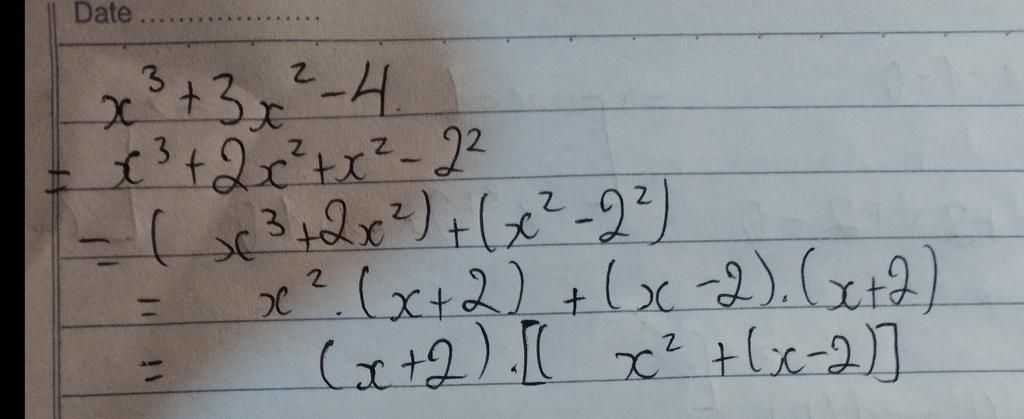 Date ....................
x³+3x²-4.
= x³+2x²+x²-2²
= ( x³+2x²)+(x²-2²)
= x².(x+2)+(x-2).(x+2)
= (x+2).[( x²+(x-2)]